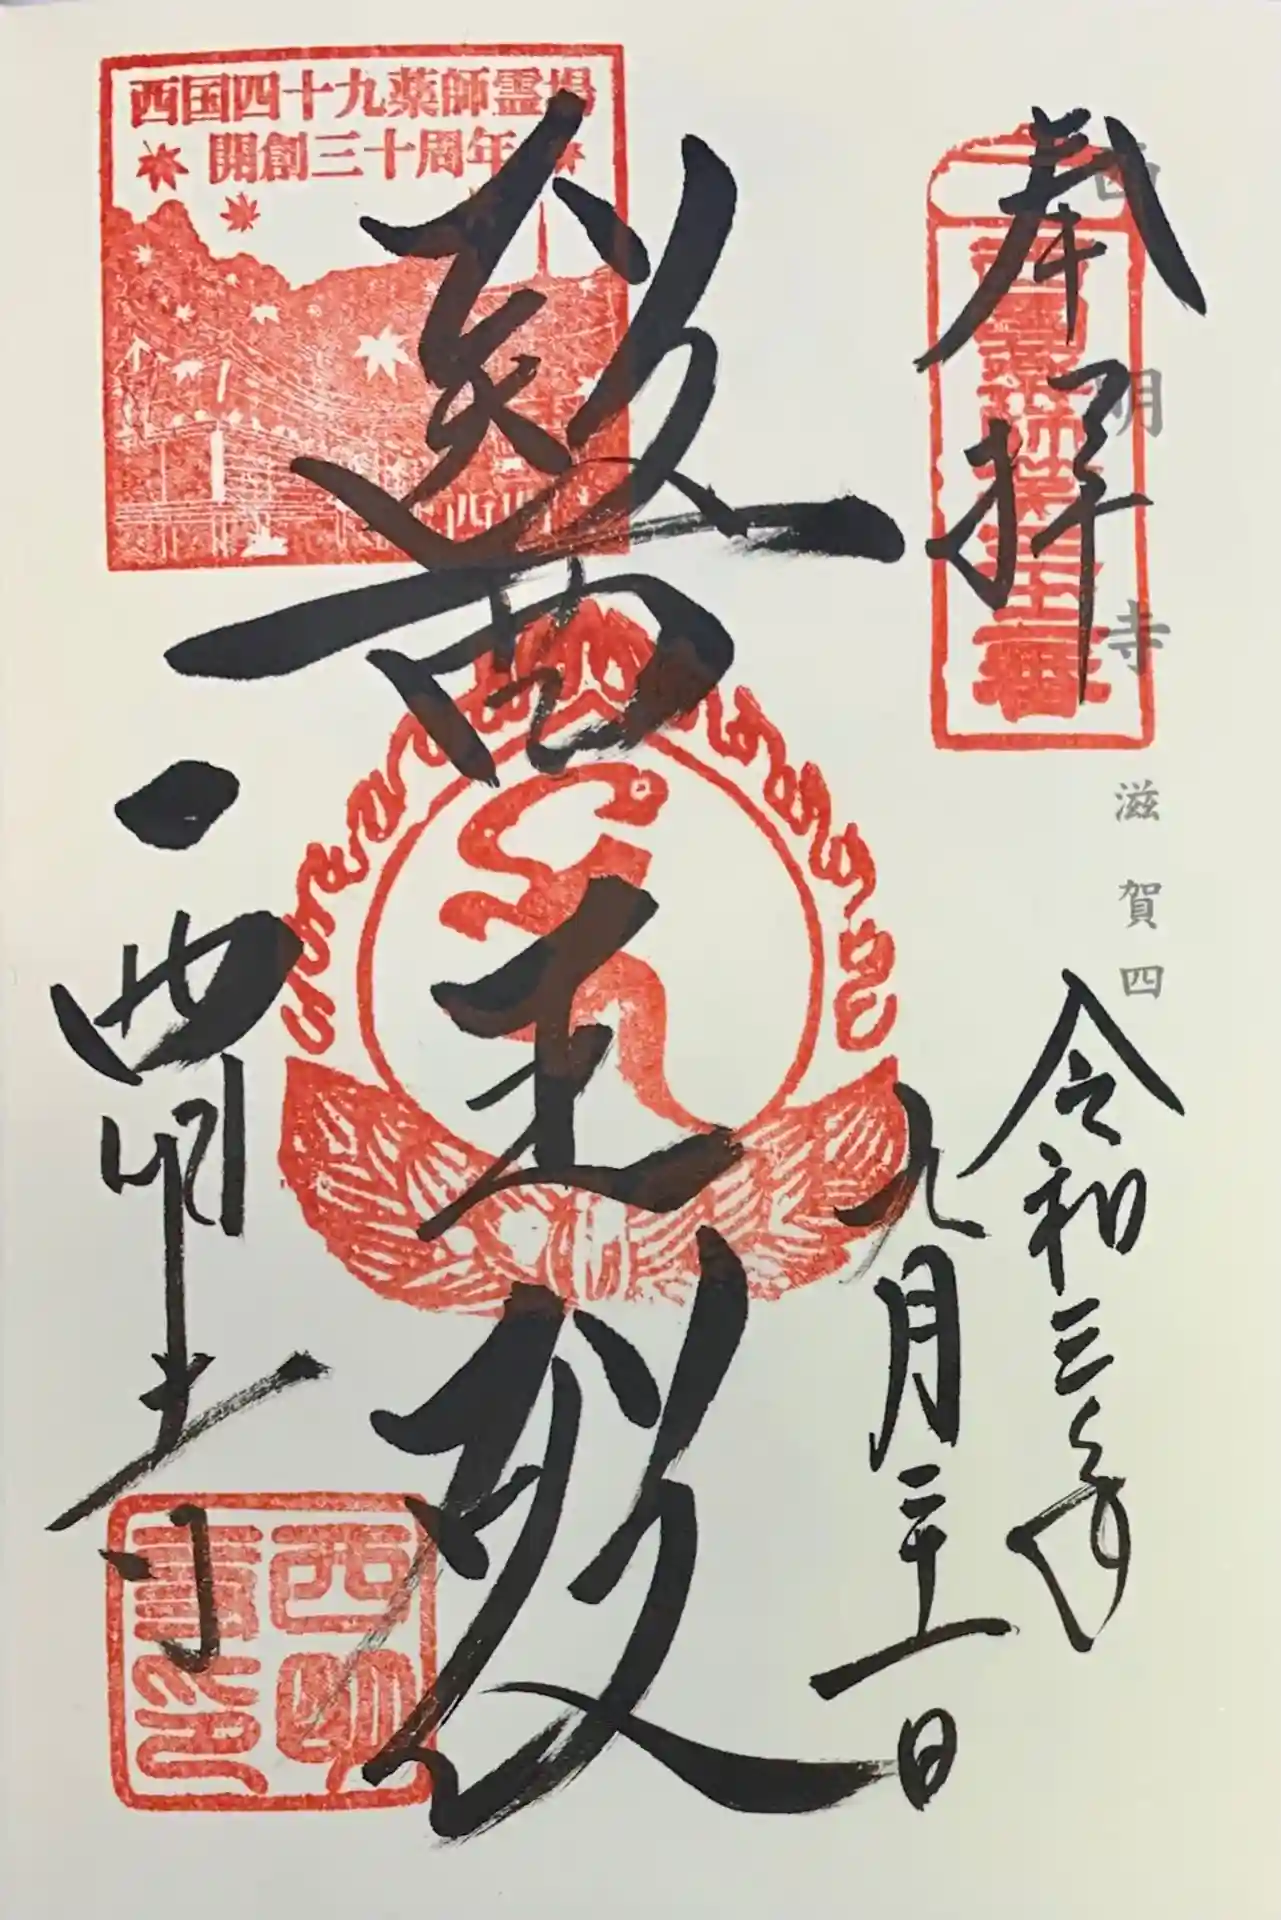 奉拝
西明寺
滋賀四
令和三年
九月二十一日
醫王殿
西明寺
西国四十九薬師霊場
開創三十周年
西明
寺印